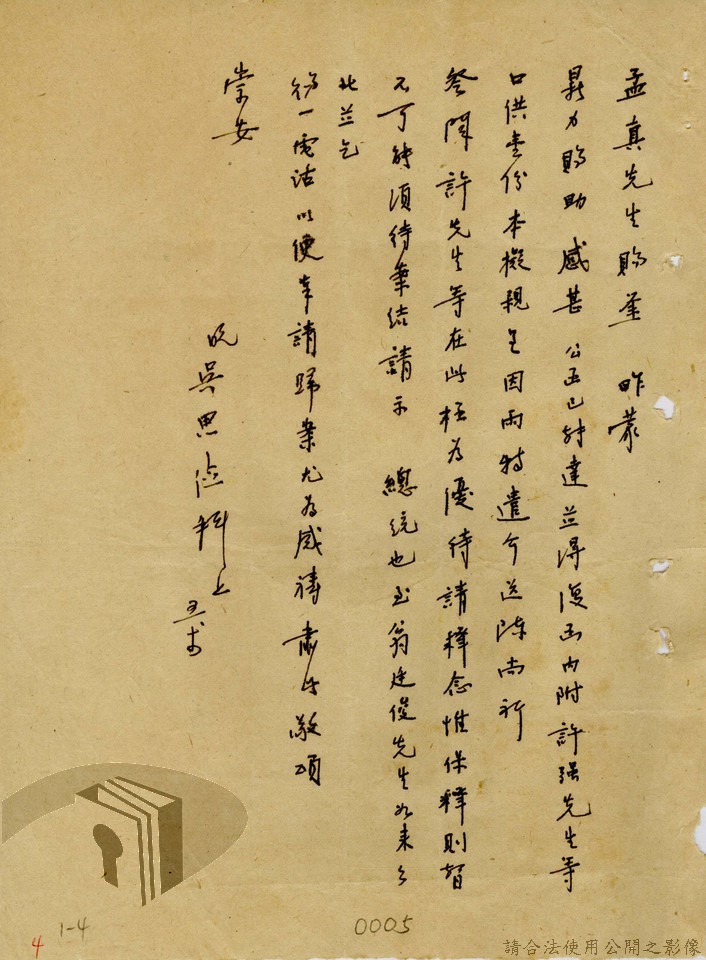 孟真先生賜鑒 昨蒙
鼎力賜助感甚公函已轉達並得復函內附許強先生等
口供壹份本擬親呈因雨特遣介送陳尚祈
參閱許先生等在此極為優待請釋念惟保釋則暫
不可能須待案結請示 總統也至翁廷俊先生如來
北並乞
賜一電話以便奉請歸案尤為感禱肅此敬頌
崇安
晚吳思 拜上
1-4
4
0005
請合法使用公開之影像